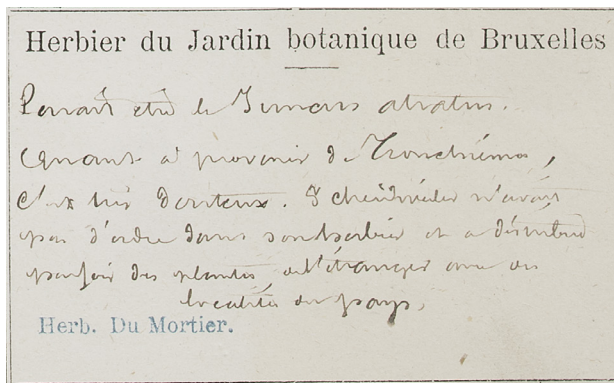 Herbier du Jardin botanique de Bruxelles
Pourrait être le Juncus atratus.
Quant à provenir de Tronchiennes,
c'est très douteux. Scheidweiler n'avait
pas d'ordre dans son herbier et a distribué
parfois des plantes de l'étranger avec des
localités du pays.
Herb. Du Mortier.